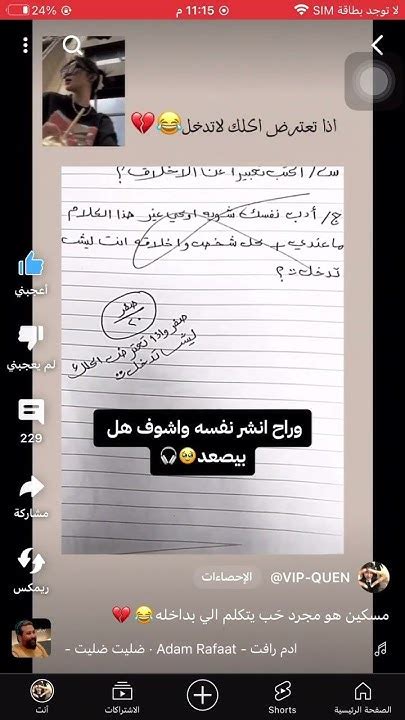 لا توجد بطاقة SIM
11:15 م
24%
اذا تعترض اكلك لاتدخل😂💔
س/ اكتب تعبيرا عن الاخلاق؟
ج/ أدب نفسك شويه اوعي غير هذا الكلام
ماعندي + كل شخص واخلاقه انت ليش
تدخل؟
صفر
٢٠
صفر واذا تعترض اكلك
ليش تدخل
وراح انشر نفسه واشوف هل
بيصعد🥹🎧
أعجبني
لم يعجبني
229
مشاركة
ريمكس
@VIP-QUEN
الإحصاءات
مسكين هو مجرد خب يتكلم الي بداخله😂💔
ادم رافت - Adam Rafaat · ضليت ضليت -
الصفحة الرئيسية
Shorts
الاشتراكات
أنت